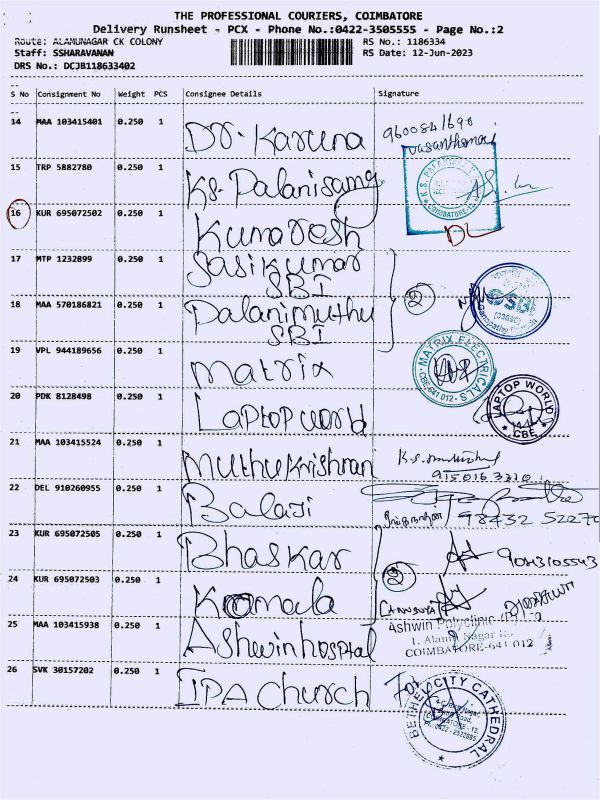 THE PROFESSIONAL COURIERS, COIMBATORE
Delivery Runsheet - PCX - Phone No.:0422-3505555 - Page No.:2
Route: ALAMUNAGAR CK COLONY
RS No.: 1186334
Staff: SSHARAVANAN
RS Date: 12-Jun-2023
DRS No.: DCJB118633402
S No Consignment No Weight PCS Consignee Details Signature
14 MAA 103415401 0.250 1 Dr. Karuna 9600841690
15 TRP 5882780 0.250 1 Ks. Palanisamy
K.S. PALANI
COIMBATORE-12
16 KUR 695072502 0.250 1 Kumaresh DL
17 MTP 1232899 0.250 1 Sasikumar
SBI
2
18 MAA 570186821 0.250 1 Palanimuthu
SBI
19 VPL 944189656 0.250 1 matrix
MATRIX ELECTRICALS
CBE-641 012
20 PDK 8128498 0.250 1 Laptop world
LAPTOP WORLD
CBE
21 MAA 103415524 0.250 1 Muthukrishnan
22 DEL 910260955 0.250 1 Balaji 98432 52270
23 KUR 695072505 0.250 1 Bhaskar 9043105543
2
24 KUR 695072503 0.250 1 Komala
25 MAA 103415938 0.250 1 Ashwin hosptal
Ashwin Polyclinic
1, Alamu Nagar
COIMBATORE-641 012
26 SVK 30157202 0.250 1 IPA Church For
BETHEL CITY CATHEDRAL